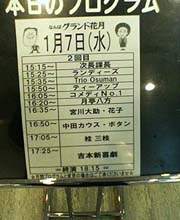 本日のプログラム
なんばグランド花月
1月7日(水)
2回目
15:15〜 次長課長
15:25〜 ランディーズ
15:35〜 Trio Osuman
15:50〜 ティーアップ
16:05〜 コメディNo.1
16:20〜 月亭八方
16:35〜 宮川大助・花子
16:50〜 中田カウス・ボタン
17:05〜 桂 三枝
17:25〜 吉本新喜劇
〜終演 18:15〜